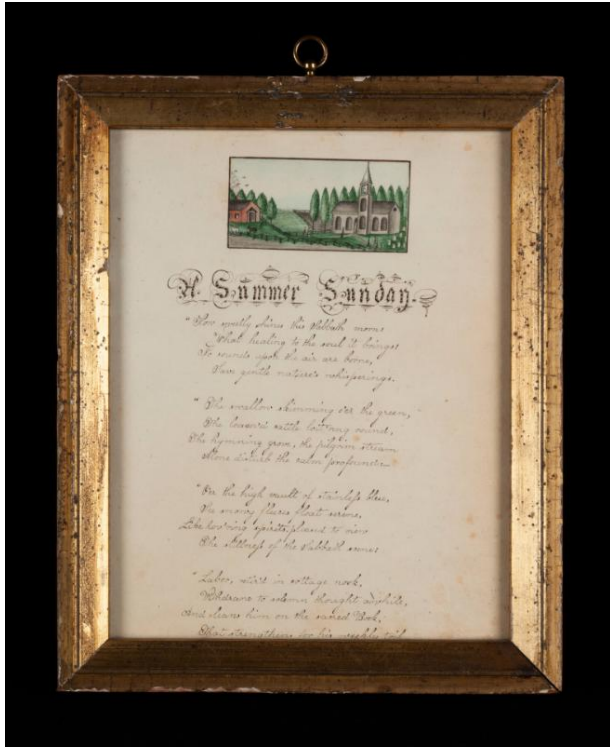 A Summer Sunday.
"How sweetly shines this Sabbath morn
What healing to the soul it brings
No sounds upon the air are borne,
Save gentle nature's whisperings.
"The swallow skimming o'er the green,
The browsing cattle lowing round,
The hymning grove, the pilgrim stream
Alone disturb the calm profound
"On the high vault of stainless blue,
The snowy fleeces float serene,
Like hov'ring spirits pleased to view
The stillness of the Sabbath scene;
"Labor, in cottage nook,
Withdraws to solemn thought awhile,
And him on the sacred Book,
That strengthens for his weekly toil